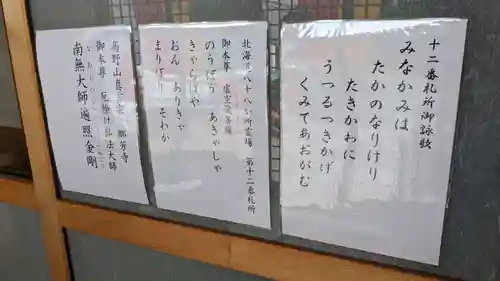 十二番札所御詠歌
みなかみは
たかのなりけり
たきかわに
うつるつきかげ
くみてあおがむ
北海道八十八ヶ所霊場 第十二番札所
御本尊 虚空蔵菩薩
のうぼう あきゃしゃ
きゃらばや
おん ありきゃ
まりぼり そわか
高野山真言宗
御本尊 厄除け弘法大師
南無大師遍照金剛